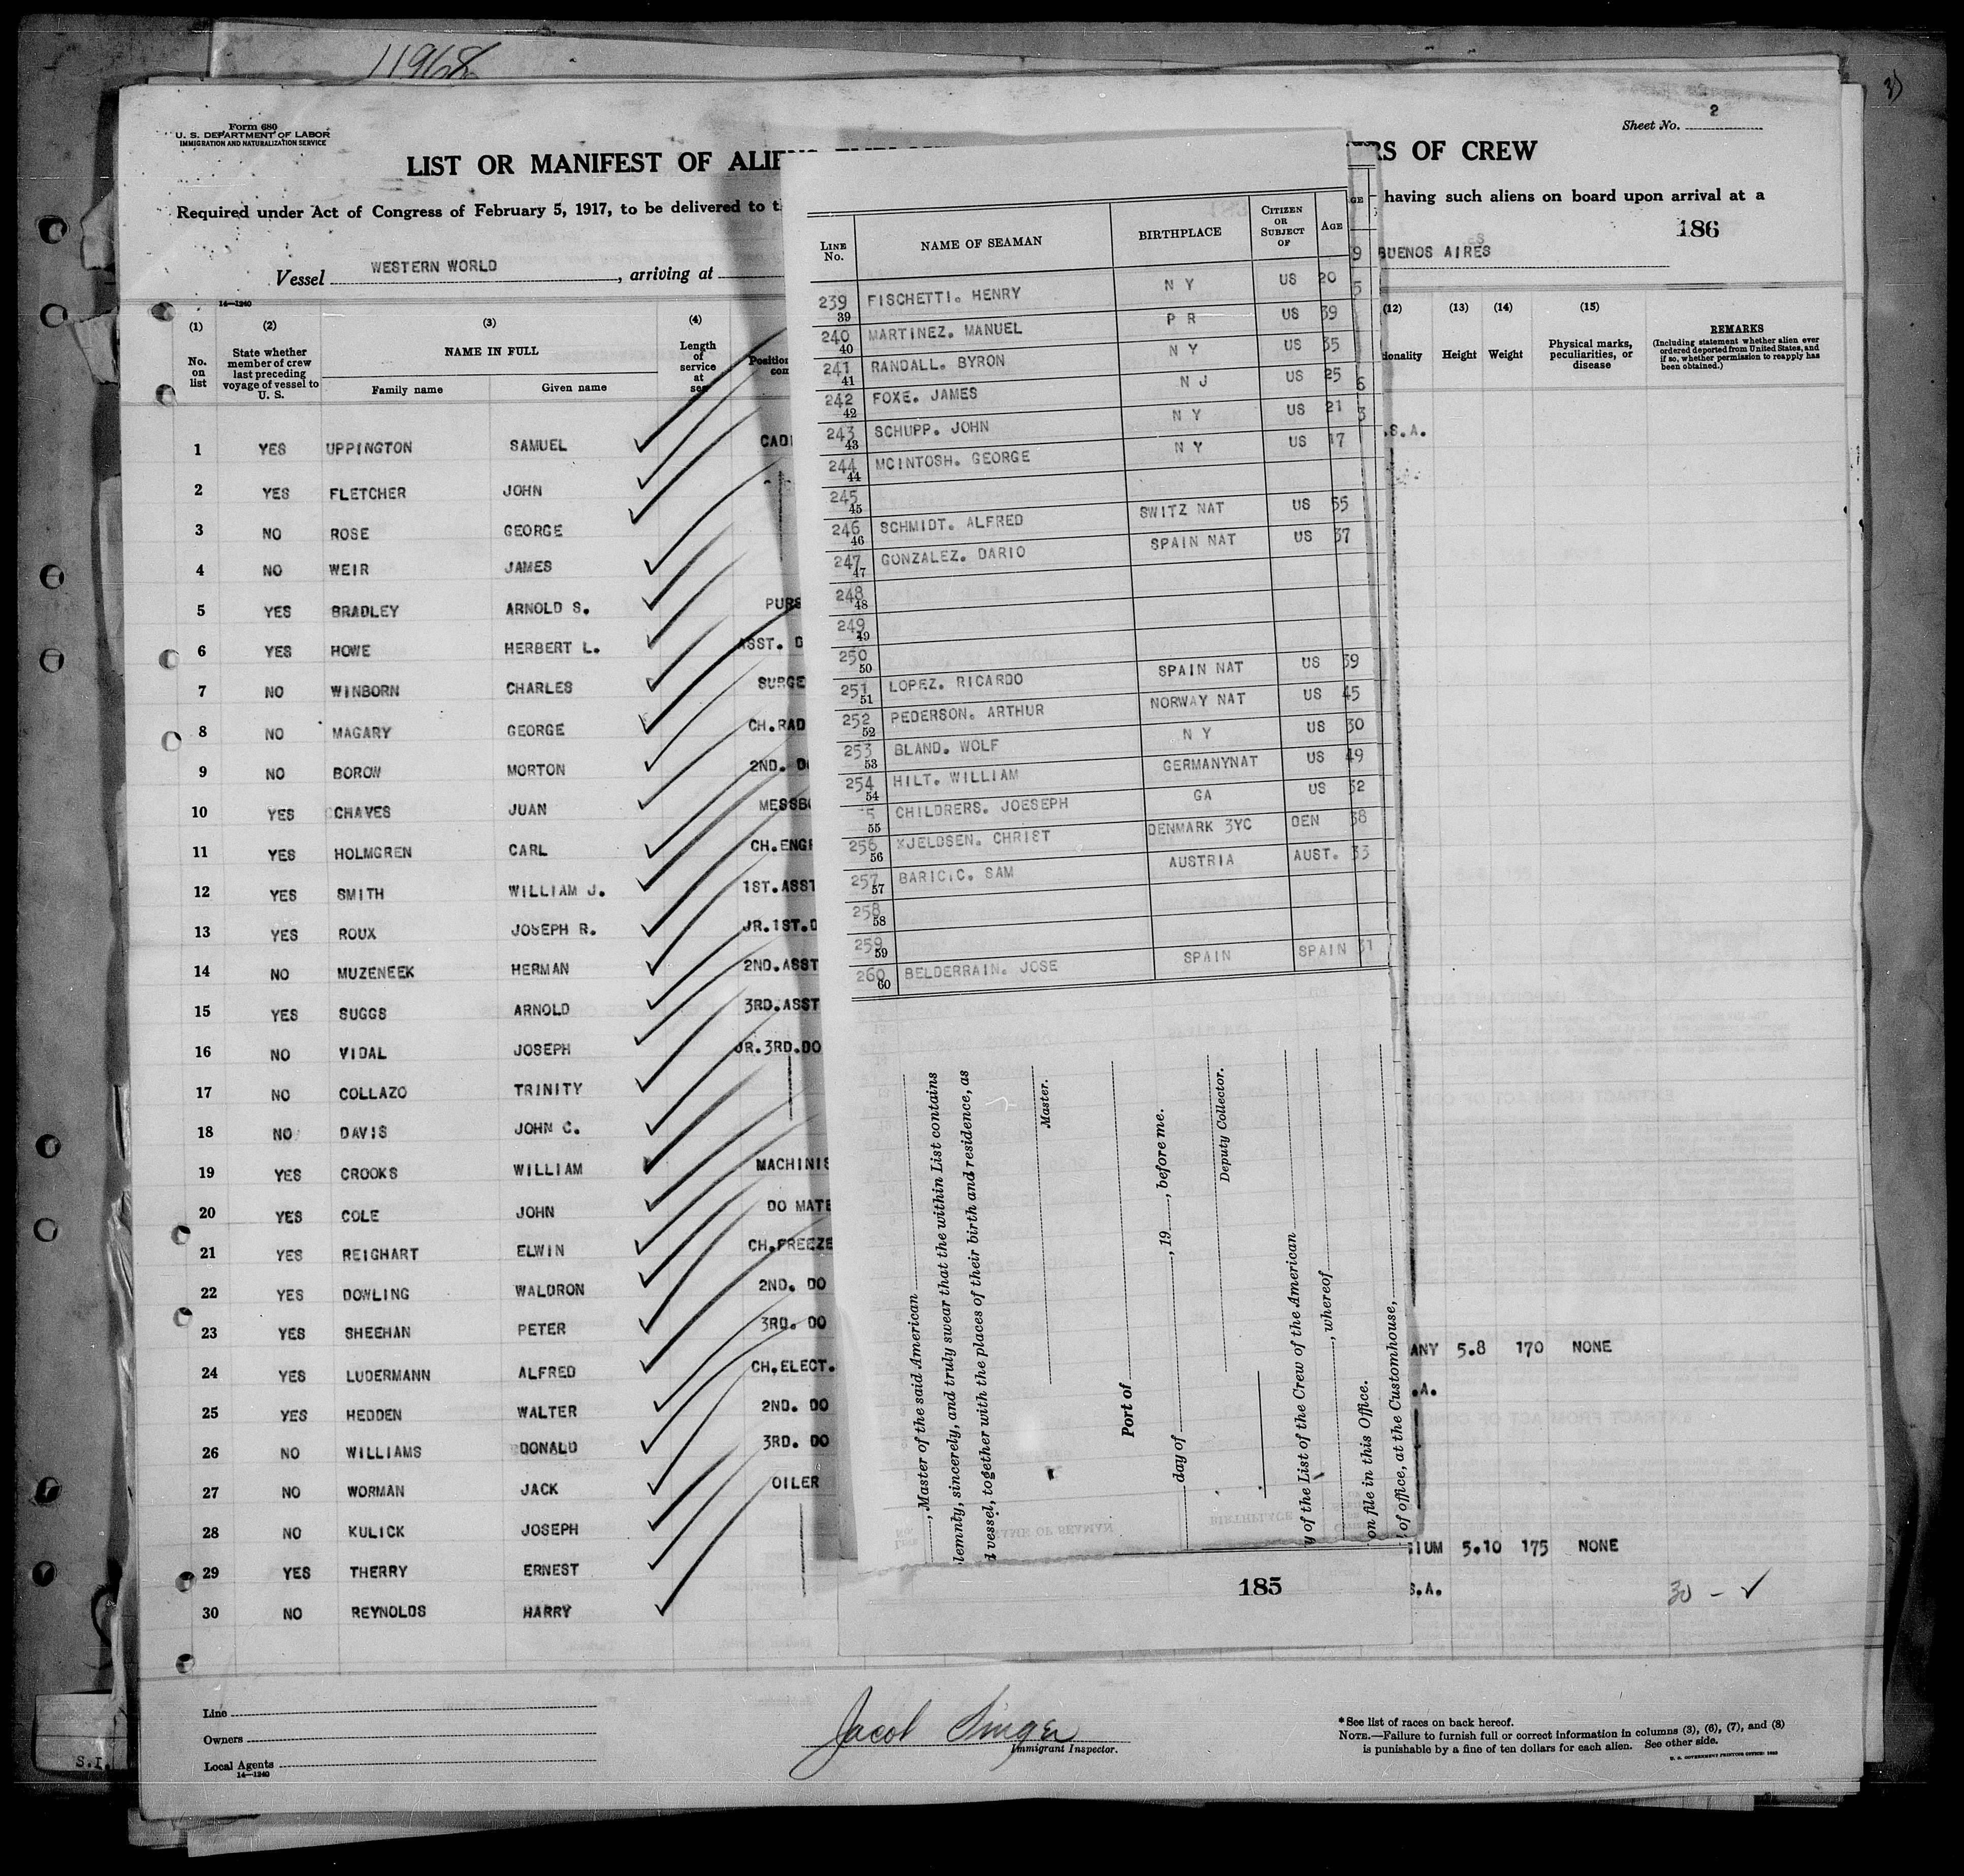 11968
Form 680
U. S. DEPARTMENT OF LABOR
IMMIGRATION AND NATURALIZATION SERVICE
Sheet No. 2
LIST OR MANIFEST OF ALIE
RS OF CREW
Required under Act of Congress of February 5, 1917, to be delivered to t
having such aliens on board upon arrival at a
186
Vessel WESTERN WORLD, arriving at
BUENOS AIRES
14—1240
(1) (2) (3) (4)
No. on list
State whether member of crew last preceding voyage of vessel to U. S.
NAME IN FULL
Family name Given name
Length of service at sea
Position
(12) (13) (14) (15)
ionality Height Weight
Physical marks, peculiarities, or disease
REMARKS
(Including statement whether alien ever ordered deported from United States, and if so, whether permission to reapply has been obtained.)
1 YES UPPINGTON SAMUEL CAD
2 YES FLETCHER JOHN
3 NO ROSE GEORGE
4 NO WEIR JAMES
5 YES BRADLEY ARNOLD S. PURS
6 YES HOWE HERBERT L. ASST. D
7 NO WINBORN CHARLES SURGE
8 NO MAGARY GEORGE CH.RAD
9 NO BOROW MORTON 2ND. DO
10 YES CHAVES JUAN MESSBO
11 YES HOLMGREN CARL CH.ENGR
12 YES SMITH WILLIAM J. 1ST.ASST
13 YES ROUX JOSEPH R. JR.1ST.D
14 NO MUZENEEK HERMAN 2ND.ASST
15 YES SUGGS ARNOLD 3RD.ASST
16 NO VIDAL JOSEPH JR.3RD.DO
17 NO COLLAZO TRINITY
18 NO DAVIS JOHN C.
19 YES CROOKS WILLIAM MACHINIS
20 YES COLE JOHN DO MATE
21 YES REIGHART ELWIN CH.FREEZE
22 YES DOWLING WALDRON 2ND. DO
23 YES SHEEHAN PETER 3RD. DO
24 YES LUDERMANN ALFRED CH.ELECT.
25 YES HEDDEN WALTER 2ND. DO
26 NO WILLIAMS DONALD 3RD. DO
27 NO WORMAN JACK OILER
28 NO KULICK JOSEPH
29 YES THERRY ERNEST
30 NO REYNOLDS HARRY
.S.A.
ANY 5.8 170 NONE
.A.
IUM 5.10 175 NONE
S.A.
30 – ✓
LINE No. NAME OF SEAMAN BIRTHPLACE CITIZEN OR SUBJECT OF AGE
239 39 FISCHETTI. HENRY N Y US 20
240 40 MARTINEZ. MANUEL P R US 39
241 41 RANDALL. BYRON N Y US 35
242 42 FOXE. JAMES N J US 25
243 43 SCHUPP. JOHN N Y US 21
244 44 MCINTOSH. GEORGE N Y US 17
245 45
246 46 SCHMIDT. ALFRED SWITZ NAT US 55
247 47 GONZALEZ. DARIO SPAIN NAT US 37
248 48
249 49
250 50
251 51 LOPEZ. RICARDO SPAIN NAT US 39
252 52 PEDERSON. ARTHUR NORWAY NAT US 45
253 53 BLAND. WOLF N Y US 30
254 54 HILT. WILLIAM GERMANYNAT US 49
5 55 CHILDRERS. JOESEPH GA US 32
256 56 KJELDSEN. CHRIST DENMARK 3YC DEN 38
257 57 BARICIC. SAM AUSTRIA AUST. 33
258 58
259 59
260 60 BELDERRAIN. JOSE SPAIN SPAIN 31
, Master of the said American
lemnly, sincerely, and truly swear that the within List contains
d vessel, together with the places of their birth and residence, as
Master.
Port of
day of , 19 , before me.
Deputy Collector.
y of the List of the Crew of the American
, whereof
on file in this Office.
of office, at the Customhouse,
185
Line
Owners
Local Agents
14—1240
Jacob Singer
Immigrant Inspector.
*See list of races on back hereof.
NOTE.—Failure to furnish full or correct information in columns (3), (6), (7), and (8)
is punishable by a fine of ten dollars for each alien. See other side.
S.I.